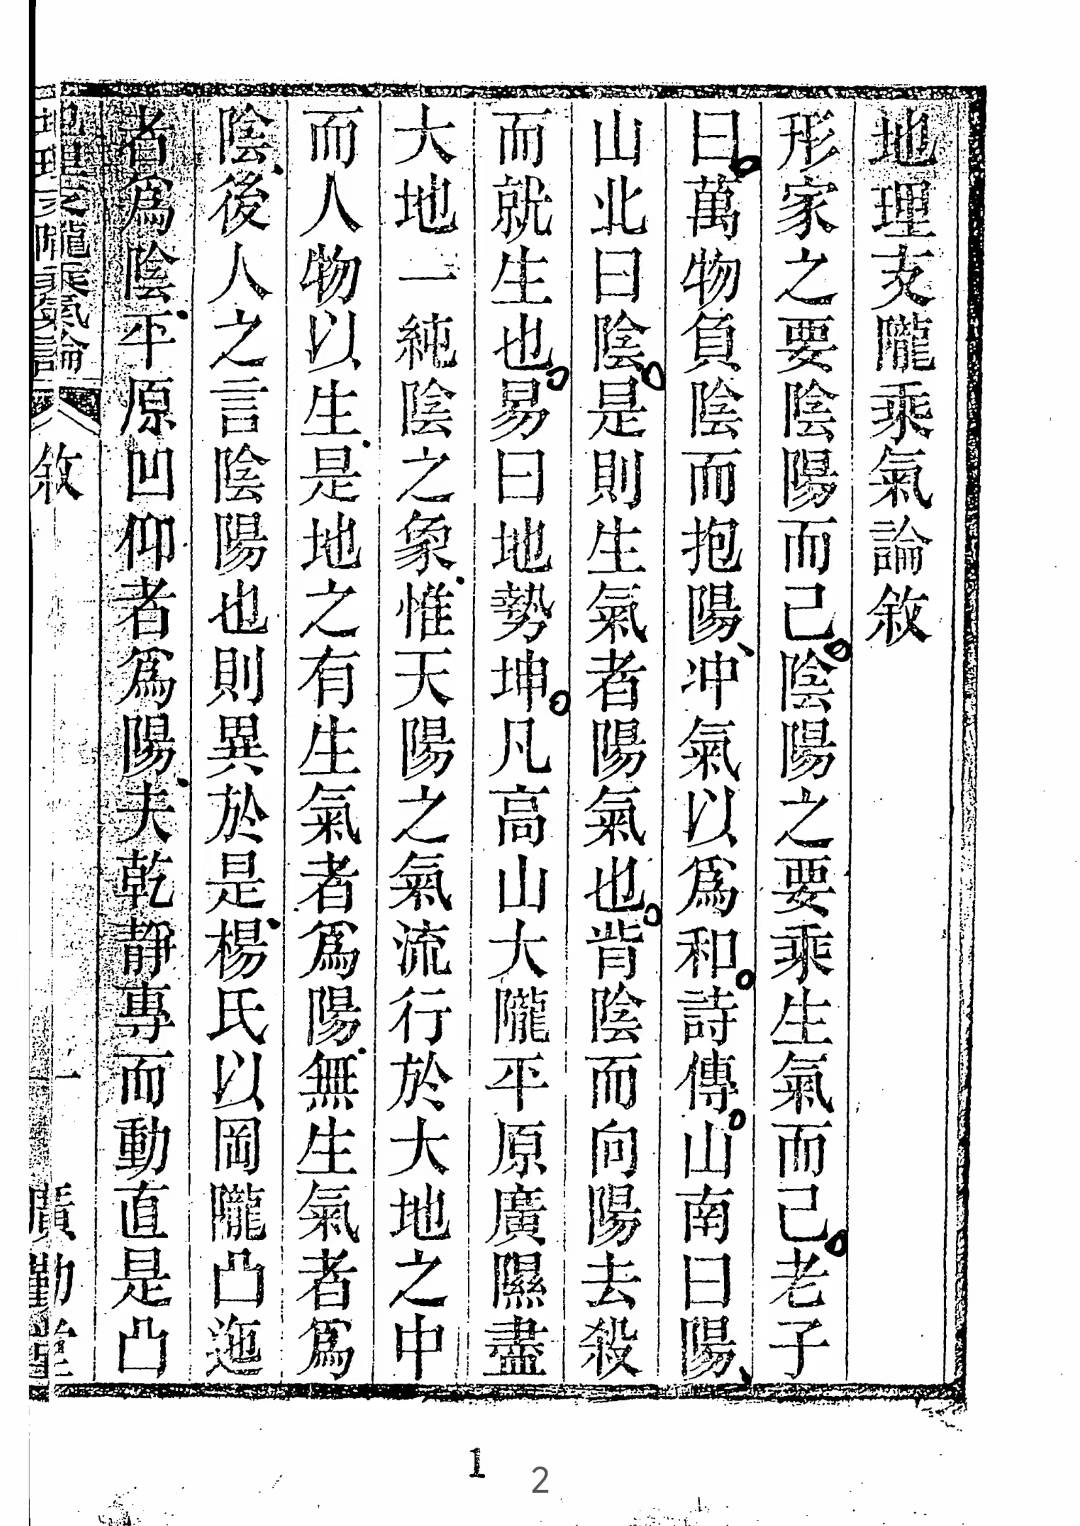 地理支隴乘氣論敘
形家之要陰陽而己陰陽之要乘生氣而己老子
曰萬物負陰而抱陽冲氣以爲和詩傳山南曰陽
山北曰陰是則生氣者陽氣也背陰而向陽去殺
而就生也易曰地勢坤凡高山大隴平原廣隰盡
大地一純陰之象惟天陽之氣流行於大地之中
而人物以生是地之有生氣者爲陽無生氣者爲
陰後人之言陰陽也則異於是楊氏以岡隴凸迤
者爲陰平原凹仰者爲陽夫乾靜專而動直是凸
地理支隴乘氣論 敘 一 廣勤堂
1
2